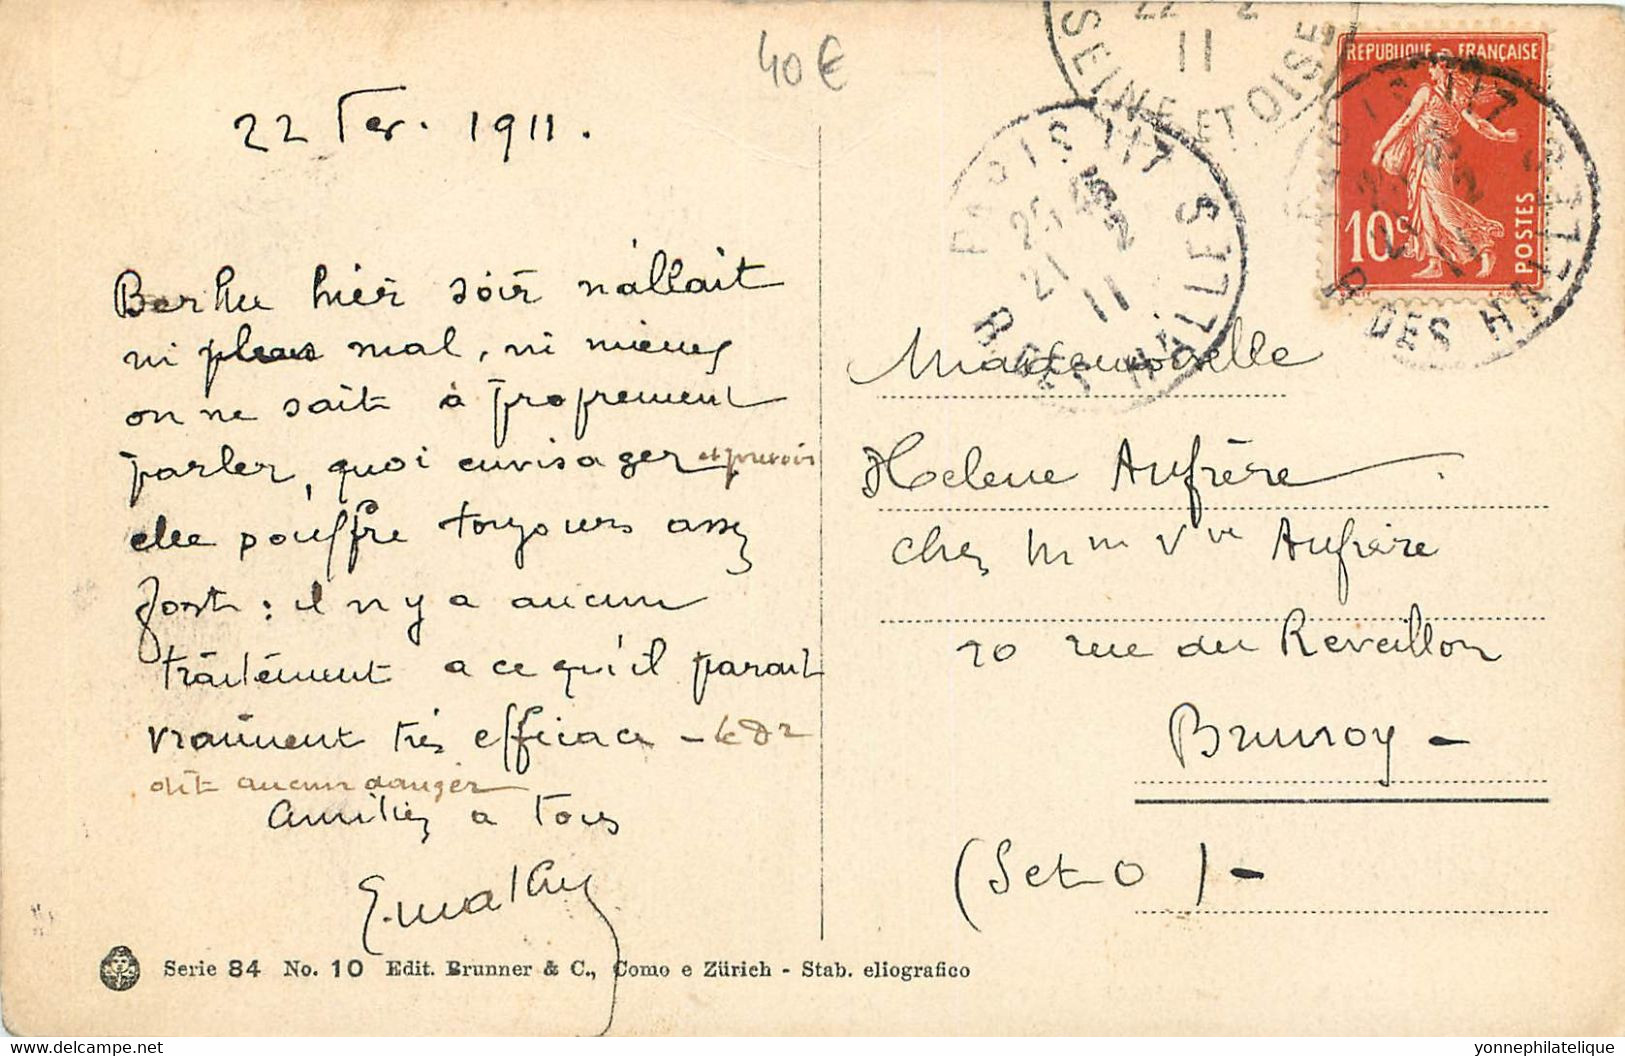 40€
22 Fer. 1911.
Berthe hier soir n'allait
ni plus mal, ni mieux
on ne sait à proprement
parler, quoi envisager et prevoir
elle pouffre toujours assez
fort : il n y a aucun
traitement a ce qu'il parait
vraiment très efficace - le Dr
dit aucun danger
Amitiés a tous
E. Mathey
22 2
11
SEINE ET OISE
PARIS 117
21 2
11
R DES HALLES
REPUBLIQUE FRANÇAISE
10c
POSTES
PARIS 117
21 2
11
R DES HALLES
Mademoiselle
Helene Aufrère
chez Mme Vve Aufrère
10 rue du Reveillon
Brunoy -
(S et O) -
Serie 84 No. 10 Edit. Brunner & C., Como e Zürich - Stab. eliografico
www.delcampe.net
yonnephilatelique